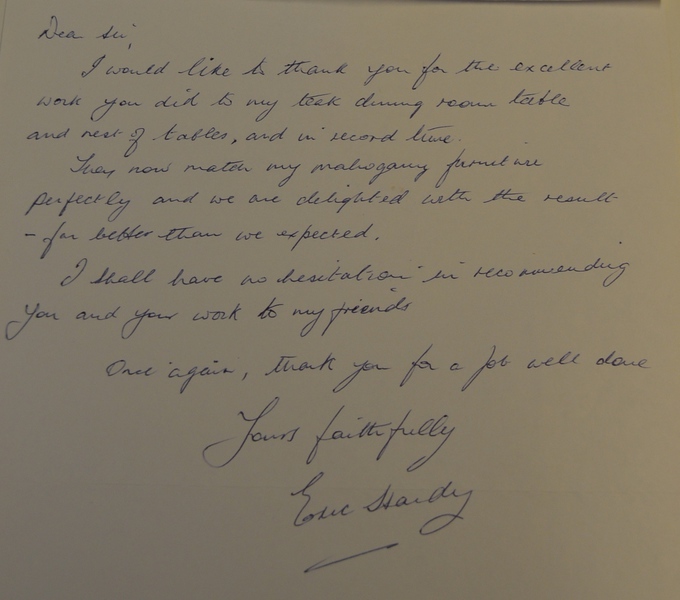 Dear Sir,
I would like to thank you for the excellent
work you did to my teak dining room table
and nest of tables, and in record time.
They now match my mahogany furniture
perfectly and we are delighted with the result
- far better than we expected.
I shall have no hesitation in recommending
you and your work to my friends
Once again, thank you for a job well done
Yours faithfully
Eric Hardy